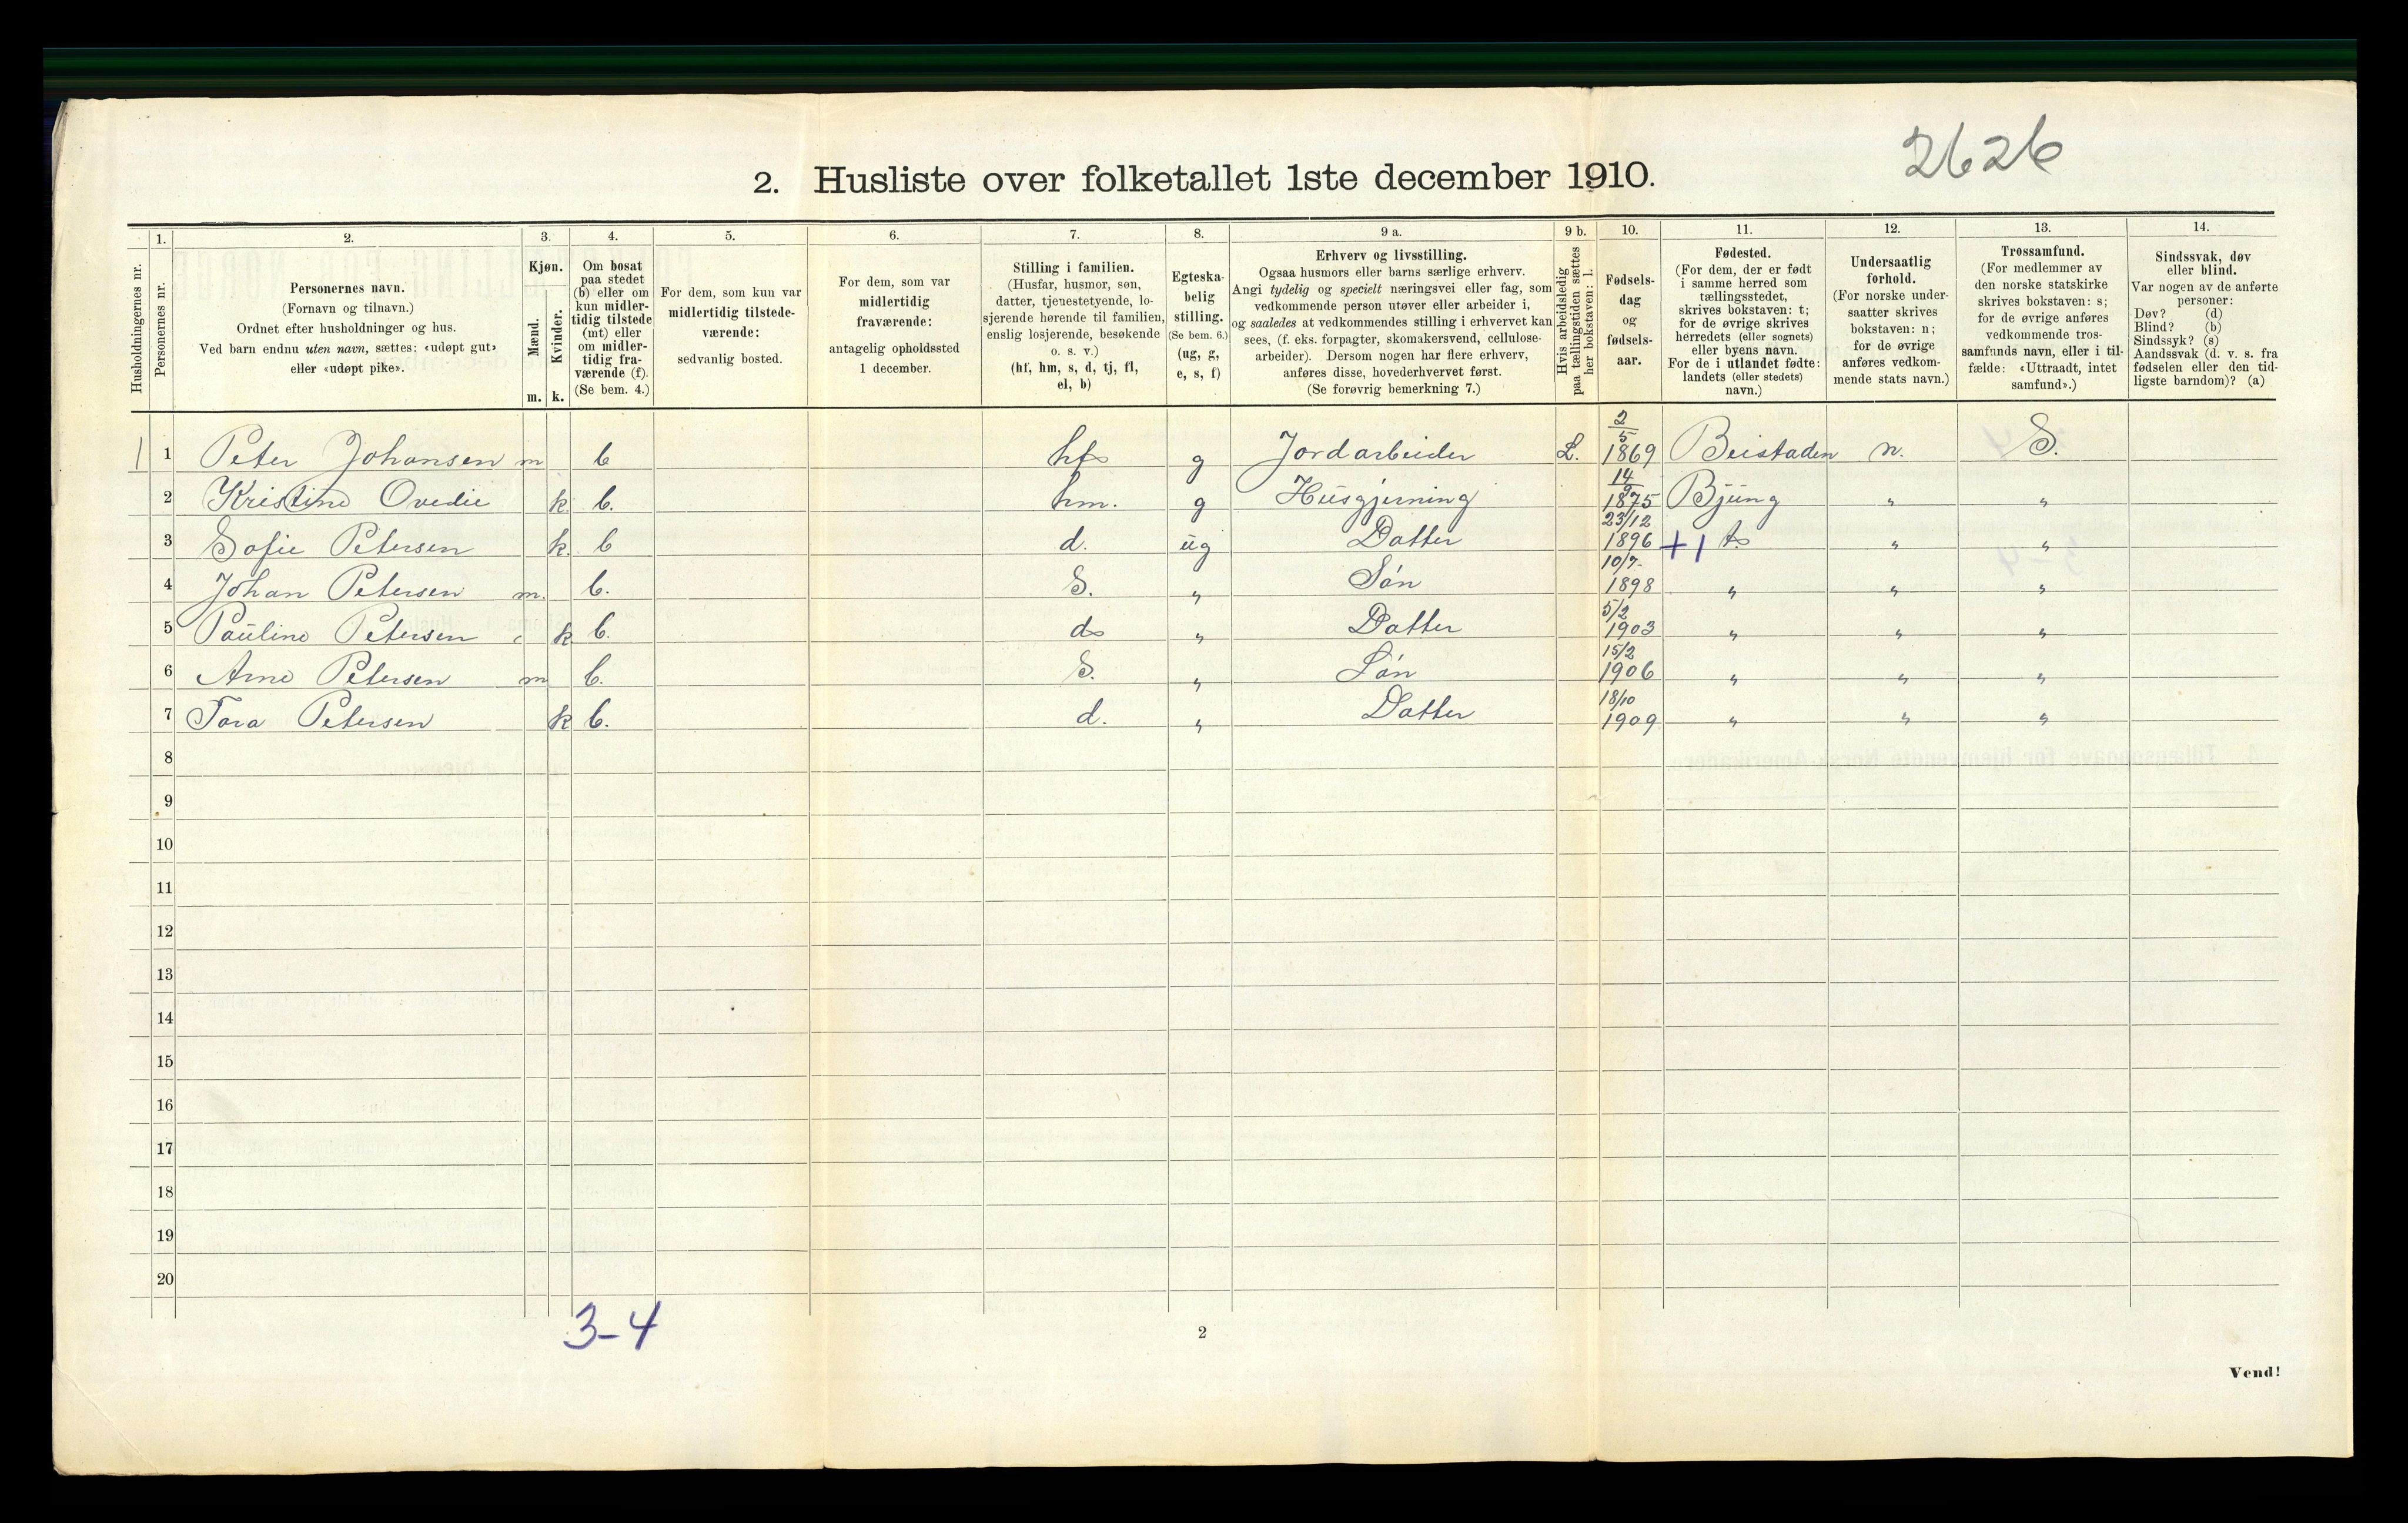 2626
2. Husliste over folketallet 1ste december 1910.
Husholdningernes nr.
1.
Personernes nr.
2.
Personernes navn.
(Fornavn og tilnavn.)
Ordnet efter husholdninger og hus.
Ved barn endnu uten navn, sættes: «udøpt gut»
eller «udøpt pike».
3.
Kjøn.
Mænd.
Kvinder.
m. k.
4.
Om bosat
paa stedet
(b) eller om
kun midler-
tidig tilstede
(mt) eller
om midler-
tidig fra-
værende (f).
(Se bem. 4.)
5.
For dem, som kun var
midlertidig tilstede-
værende:
sedvanlig bosted.
6.
For dem, som var
midlertidig
fraværende:
antagelig opholdssted
1 december.
7.
Stilling i familien.
(Husfar, husmor, søn,
datter, tjenestetyende, lo-
sjerende hørende til familien,
enslig losjerende, besøkende
o. s. v.)
(hf, hm, s, d, tj, fl,
el, b)
8.
Egteska-
belig
stilling.
(Se bem. 6.)
(ug, g,
e, s, f)
9 a.
Erhverv og livsstilling.
Ogsaa husmors eller barns særlige erhverv.
Angi tydelig og specielt næringsvei eller fag, som
vedkommende person utøver eller arbeider i,
og saaledes at vedkommendes stilling i erhvervet kan
sees, (f. eks. forpagter, skomakersvend, cellulose-
arbeider). Dersom nogen har flere erhverv,
anføres disse, hovederhvervet først.
(Se forøvrig bemerkning 7.)
9 b.
Hvis arbeidsledig
paa tællingstiden sættes
her bokstaven: l.
10.
Fødsels-
dag
og
fødsels-
aar.
11.
Fødested.
(For dem, der er født
i samme herred som
tællingsstedet,
skrives bokstaven: t;
for de øvrige skrives
herredets (eller sognets)
eller byens navn.
For de i utlandet fødte:
landets (eller stedets)
navn.)
12.
Undersaatlig
forhold.
(For norske under-
saatter skrives
bokstaven: n;
for de øvrige
anføres vedkom-
mende stats navn.)
13.
Trossamfund.
(For medlemmer av
den norske statskirke
skrives bokstaven: s;
for de øvrige anføres
vedkommende tros-
samfunds navn, eller i til-
fælde: «Uttraadt, intet
samfund».)
14.
Sindssvak, døv
eller blind.
Var nogen av de anførte
personer:
Døv? (d)
Blind? (b)
Sindssyk? (s)
Aandssvak (d. v. s. fra
fødselen eller den tid-
ligste barndom)? (a)
1 1 Peter Johansen m b hf g Jordarbeider L. 2/5 1869 Beistaden n. S.
2 Kristine Ovedie k b. hm. g Husgjerning 14/9 1875 Bjung " "
3 Sofie Petersen k. b d. ug Datter 23/12 1896 +1 t. " "
4 Johan Petersen m. b. S. " Søn 10/7 1898 " " "
5 Pauline Petersen k b. d " Datter 5/2 1903 " " "
6 Arne Petersen m b. S. " Søn 15/2 1906 " " "
7 Tora Petersen k b. d. " Datter 18/10 1909 " " "
8
9
10
11
12
13
14
15
16
17
18
19
20
3-4
2
Vend!